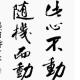 此心不動
隨機而動